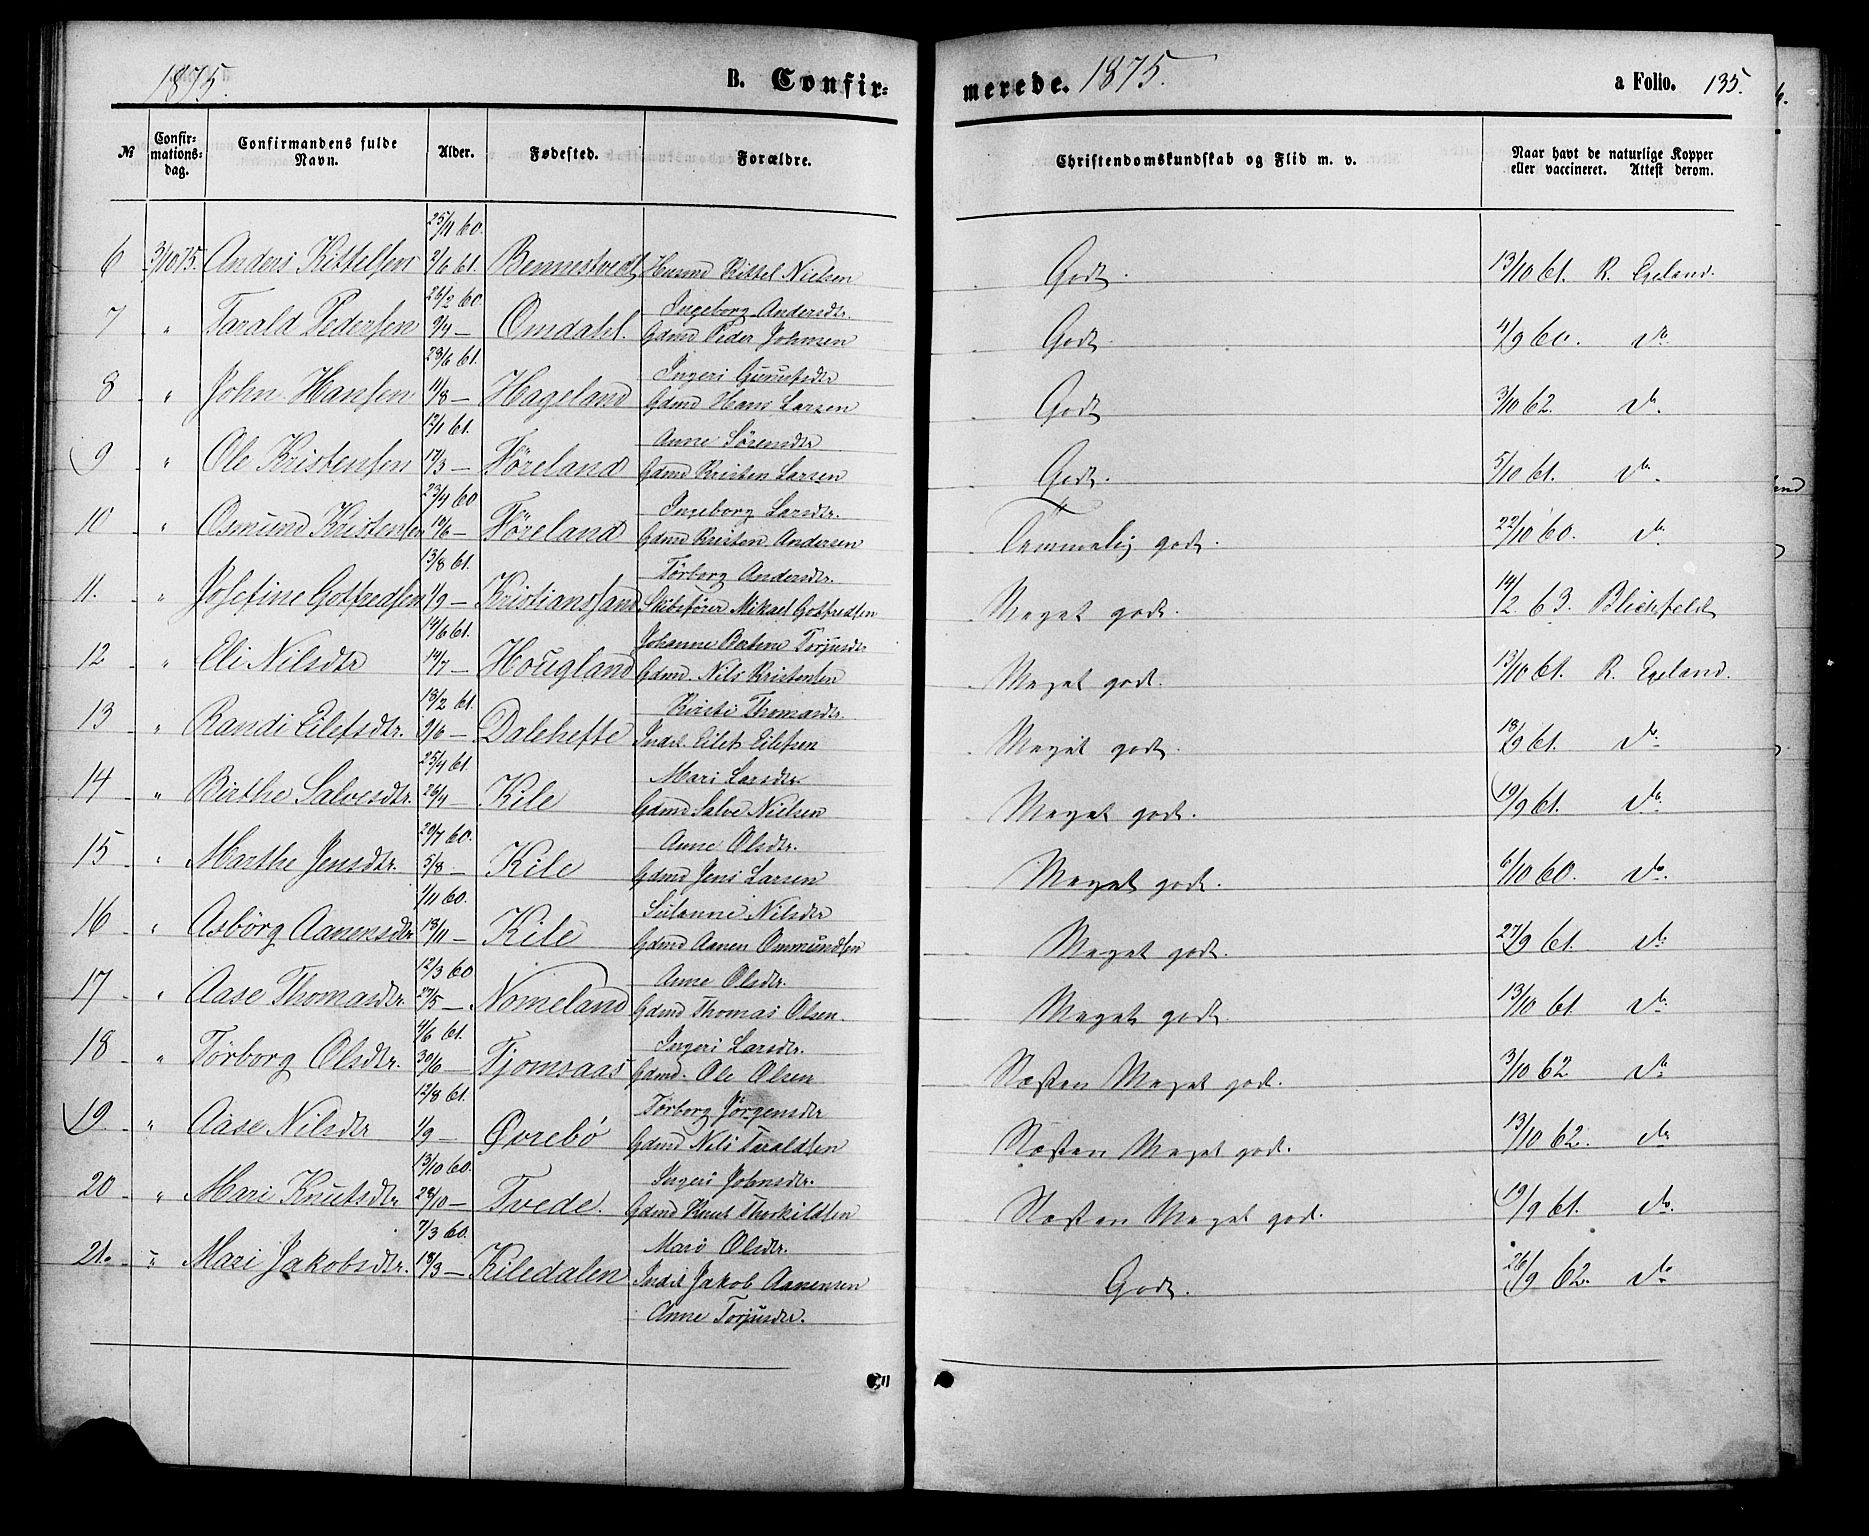 1875. B. Confir= merede. 1875. a Folio. 135.
№ Confirmations=dag. Confirmandens fulde Navn. Alder. Fødested. Forældre. Christendomskundskab og Flid m. v. Naar havt de naturlige Kopper eller vaccineret. Attest derom.
25/11 60.
6 3/10 75. Anders Kittelsen 2/6 61. Bennestvedt Husmd Kittel Nielsen Godt. 13/10 61. R. Egeland.
26/2 60. Ingeborg Andersdtr.
7 " Tarald Pedersen 9/4 — Omdahl. Gdmd Peder Johnsen Godt. 4/9 60. do
23/6 61. Ingeri Gunufsdtr
8 " John Hansen 11/8 — Hageland Gdmd Hans Larsen Godt 3/10 62. do.
12/1 61. Anne Sörensdtr
9 " Ole Kristensen 17/3 — Föreland Gdmd Kristen Larsen Godt. 5/10 61. do.
23/4 60 Ingeborg Larsdtr.
10 " Osmund Kristensen 10/6 — Föreland Gdmd Kristen Andersen Temmelig godt. 22/10 60. do
13/8 61. Törborg Andersdtr.
11. " Josefine Gotfredsen 1/9 — Kristianssand Skibsfører Mikael Gotfredsen Meget godt. 14/2 63. Blichfeldt
14/6 61. Johanne Bertine Torjusdtr
12 " Eli Nilsdtr 14/7 — Hougland Gdmd. Nils Kristensen Meget godt. 13/10 61. R. Egeland.
13/2 61. Kirsti Thomasdtr.
13 " Randi Eilefsdtr. 9/6 — Dalehefte Inds. Eilef Eilefsen Meget godt. 18/9 61. do.
25/4 61. Mari Larsdtr.
14 " Birthe Salvesdtr. 26/4 — Kile Gdmd Salve Nielsen Meget godt. 19/9 61. do.
20/7 60. Anne Olsdtr.
15 " Marthe Jensdtr. 5/8 — Kile Gdmd Jens Larsen Meget godt. 6/10 60. do.
1/11 60. Susanne Nilsdtr
16 " Asbörg Aanensdtr 18/11 — Kile Gdmd Aanen Ommundsen Meget godt. 27/9 61. do
12/3 60 Anne Olsdtr.
17 " Aase Thomasdtr. 27/5 — Nomeland Gdmd Thomas Olsen. Meget godt. 13/10 61. do.
9/6 61. Ingeri Larsdtr.
18 " Törborg Olsdtr. 30/6 — Tjomsaas Gdmd. Ole Olsen Næsten Meget godt. 3/10 62. do
12/8 61. Törborg Jörgensdtr
19. " Aase Nilsdtr 1/9 — Øvrebö Gdmd Nils Taraldsen Næsten Meget godt. 13/10 62. do
13/10 60. Ingeri Johnsdtr.
20 " Mari Knutsdtr 28/10 — Tvede. Gdmd Knut Thorkildsen Næsten Meget godt. 19/9 61. do.
7/3 60. Mari Olsdtr.
21. " Mari Jakobsdtr. 18/3 — Kiledalen Inds. Jakob Aanensen Godt. 26/9 62. do
Anne Torjusdtr.